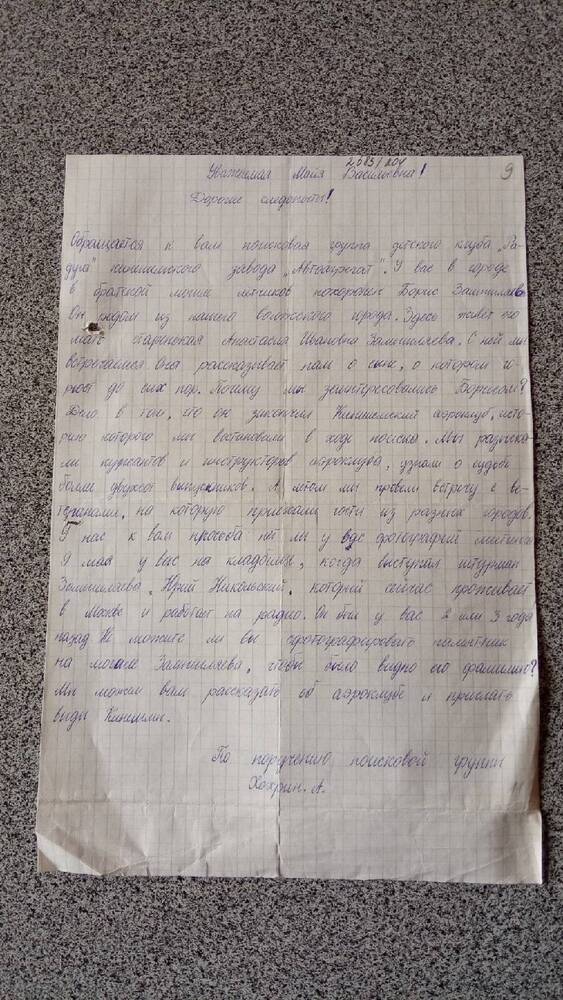 2083/204
9
Уважаемая Майя Васильевна!
Дорогие следопыты!
Обращается к вам поисковая группа детского клуба „Ра-
дуга" кинешемского завода „Автоагрегат". У вас в городе
в братской могиле летчиков похоронен Борис Замышляев.
Он родом из нашего волжского города. Здесь живет его
мать старенькая Анастасия Ивановна Замышляева. С ней мы
встречаемся. Она рассказывает нам о сыне, о котором го-
рюет до сих пор. Почему мы заинтересовались Борисом?
Дело в том, что он закончил Кинешемский аэроклуб, исто-
рию которого мы востановили в ходе поиска. Мы разыска-
ли курсантов и инструкторов аэроклуба, узнали о судьбе
более двухсот выпускников. А летом мы провели встречу с ве-
теранами, на которую приехали гости из разных городов.
У нас к вам просьба нет ли у вас фотографий митинга
9 мая у вас на кладбище, когда выступил штурман
Замышляева, Юрий Никольский, который сейчас проживает
в Москве и работает на радио. Он был у вас 2 или 3 года
назад. Не можите ли вы сфотографировать памятник
на могиле Замышляева, чтобы было видно его фамилию?
Мы можем вам рассказать об аэроклубе и прислать
виды Кинешмы.
По поручению поисковой группы
Хохрин. А.